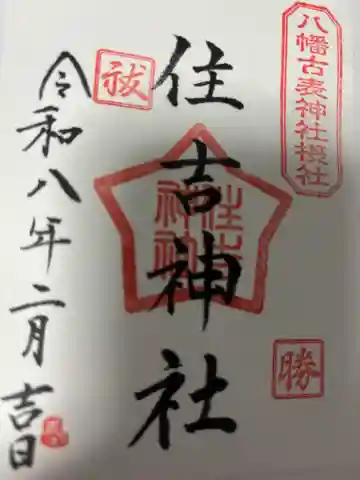 八幡古表神社摂社
住吉神社
祓
住吉
神社
勝
令和八年二月吉日